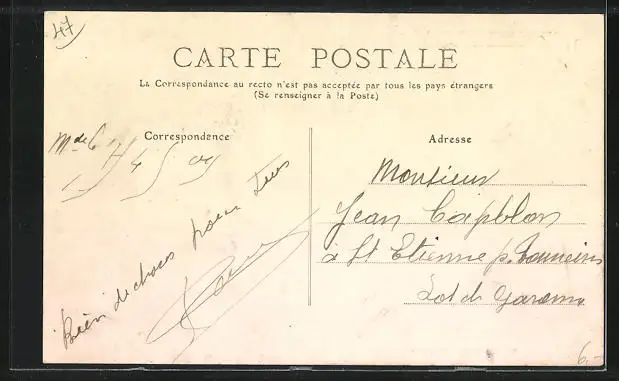 47
CARTE POSTALE
La Correspondance au recto n'est pas acceptée par tous les pays étrangers
(Se renseigner à la Poste)
Correspondance
Adresse
Bien de choses pour tous
Monsieur
Jean
à St Etienne p. Tonneins
Lot & Garonne
6.-